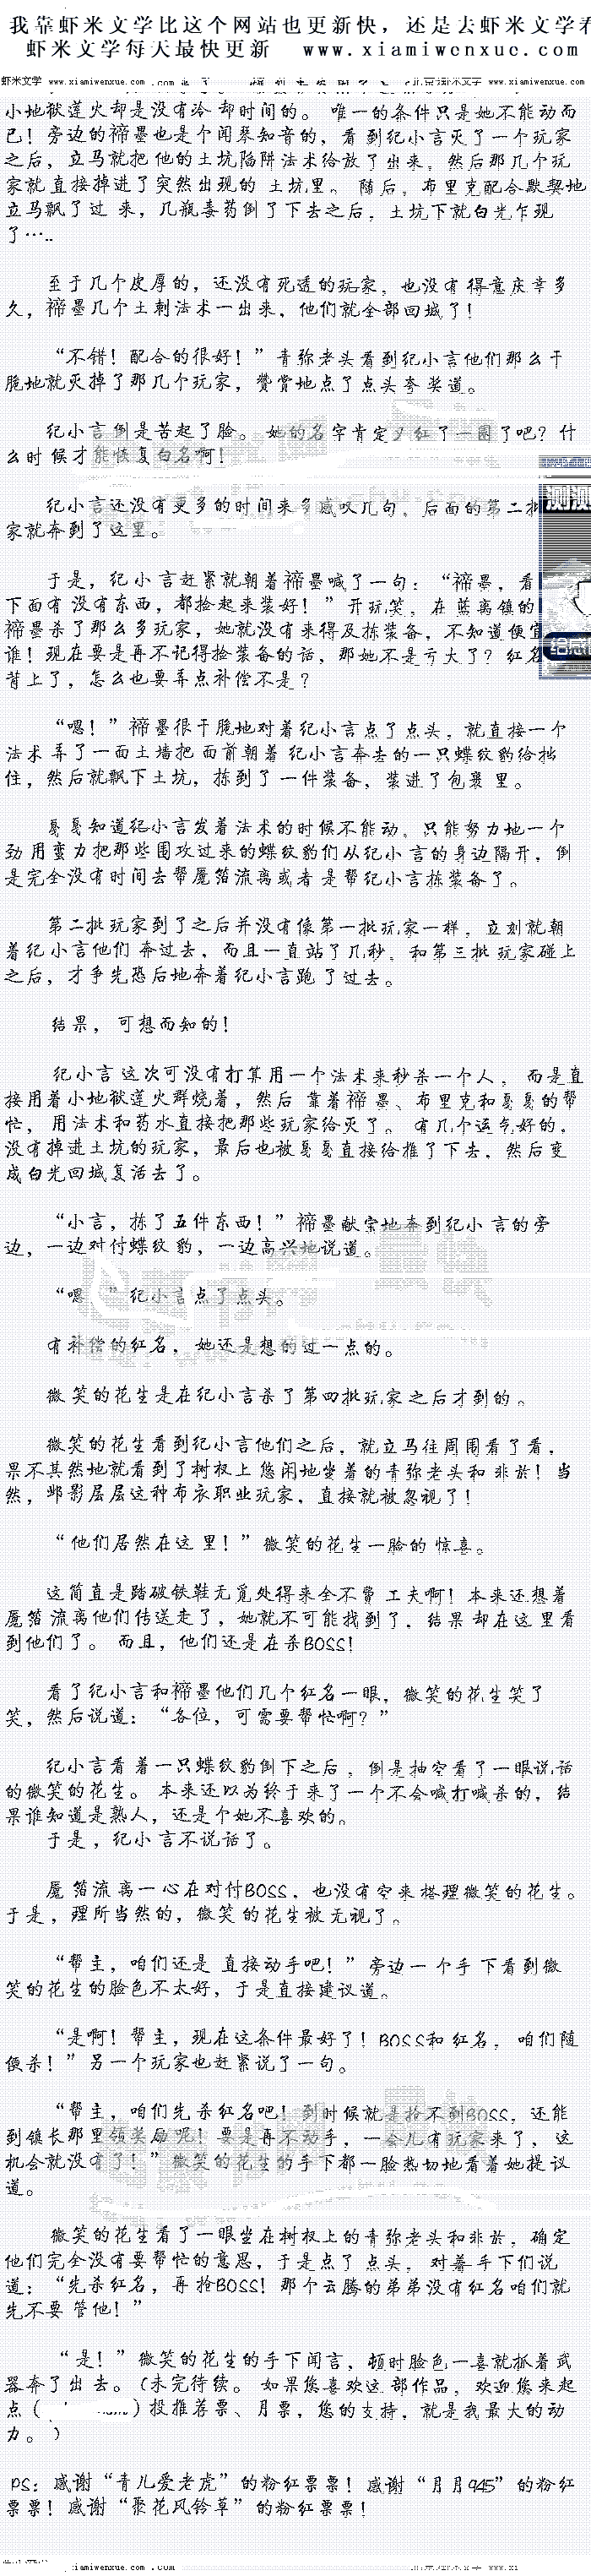 我靠虾米文学比这个网站也更新快，还是去虾米文学看
虾米文学每天最快更新 www.xiamiwenxue.com
虾米文学 www.xiamiwenxue.com .com 虾米文学 www.xiamiwenxue.com
小地狱莲火却是没有冷却时间的。 唯一的条件只是她不能动而
已！旁边的禘墨也是个闻琴知音的，看到纪小言灭了一个玩家
之后，立马就把他的土坑陷阱法术给放了出来，然后那几个玩
家就直接掉进了突然出现的 土坑里。 随后，布里克配合默契地
立马飘了过 来，几瓶毒药倒了下去之后，土坑下就白光乍现
了…..
至于几个皮厚的，还没有死透的玩家，也没有得意庆幸多
久，禘墨几个土刺法术一出来，他们就全部回城了！
“不错！配合的很好！”青弥老头看到纪小言他们那么干
脆地就灭掉了那几个玩家，赞赏地点了点头夸奖道。
纪小言倒是苦起了脸。 她的名字肯定又红了一圈了吧？什
么时候才能恢复白名啊！
纪小言还没有更多的时间来多感叹几句，后面的第二批
家就奔到了这里。
于是，纪小言赶紧就朝着禘墨喊了一句：“禘墨，看
下面有没有东西，都捡起来装好！”开玩笑，在蓝离镇的
禘墨杀了那么多玩家，她就没有来得及拣装备，不知道便宜
谁！现在要是再不记得捡装备的话，那她不是亏大了？红名
背上了，怎么也要弄点补偿不是？
“嗯！”禘墨很干脆地对着纪小言点了点头，就直接一个
法术弄了一面土墙把面前朝着纪小言奔去的一只蝶纹豹给挡
住，然后就飘下土坑，拣到了一件装备，装进了包裹里。
戛戛知道纪小言发着法术的时候不能动，只能努力地一个
劲用蛮力把那些围攻过来的蝶纹豹们从纪小言的身边隔开，倒
是完全没有时间去帮魇箔流离或者是帮纪小言拣装备了。
第二批玩家到了之后并没有像第一批玩家一样，立刻就朝
着纪小言他们奔过去，而且一直站了几秒，和第三批玩家碰上
之后，才争先恐后地奔着纪小言跑了过去。
结果，可想而知的！
纪小言这次可没有打算用一个法术来秒杀一个人，而是直
接用着小地狱莲火群烧着，然后靠着禘墨、布里克和戛戛的帮
忙，用法术和药水直接把那些玩家给灭了。 有几个运气好的，
没有掉进土坑的玩家，最后也被戛戛直接给推了下去，然后变
成白光回城复活去了。
“小言，拣了五件东西！”禘墨献宝地奔到纪小言的旁
边，一边对付蝶纹豹，一边高兴地说道。
“嗯 ”纪小言点了点头。
有补偿的红名，她还是想的过一点的。
微笑的花生是在纪小言杀了第四批玩家之后才到的。
微笑的花生看到纪小言他们之后，就立马往周围看了看，
果不其然地就看到了树杈上悠闲地坐着的青弥老头和非於！当
然，邺影层层这种布衣职业玩家，直接就被忽视了！
“他们居然在这里！”微笑的花生一脸的惊喜。
这简直是踏破铁鞋无觅处得来全不费工夫啊！本来还想着
魇箔流离他们传送走了，她就不可能找到了，结果却在这里看
到他们了。 而且，他们还是在杀BOSS！
看了纪小言和禘墨他们几个红名一眼，微笑的花生笑了
笑，然后说道：“各位，可需要帮忙啊？”
纪小言看着一只蝶纹豹倒下之后，倒是抽空看了一眼说话
的微笑的花生。 本来还以为终于来了一个不会喊打喊杀的，结
果谁知道是熟人，还是个她不喜欢的。
于是，纪小言不说话了。
魇箔流离一心在对付BOSS，也没有空来搭理微笑的花生。
于是，理所当然的，微笑的花生被无视了。
“帮主，咱们还是直接动手吧！”旁边一个手下看到微
笑的花生的脸色不太好，于是直接建议道。
“是啊！帮主，现在这条件最好了！BOSS和红名，咱们随
便杀！”另一个玩家也赶紧说了一句。
“帮主，咱们先杀红名吧！到时候就是抢不到BOSS，还能
到镇长那里领奖励呢！要是再不动手，一会儿有玩家来了，这
机会就没有了！”微笑的花生的手下都一脸热切地看着她提议
道。
微笑的花生看了一眼坐在树杈上的青弥老头和非於，确定
他们完全没有要帮忙的意思，于是点了点头，对着手下们说
道：“先杀红名，再抢BOSS！那个云腾的弟弟没有红名咱们就
先不要管他！”
“是！”微笑的花生的手下闻言，顿时脸色一喜就抓着武
器奔了出去。（未完待续。 如果您喜欢这部作品，欢迎您来起
点（ ）投推荐票、月票，您的支持，就是我最大的动
力。）
PS：感谢“青儿爱老虎”的粉红票票！感谢“月月945”的粉红
票票！感谢“聚花风铃草”的粉红票票！